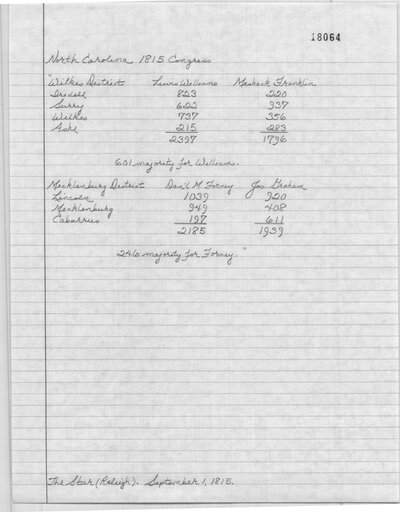 18064
North Carolina 1815 Congress
"Wilkes District Lewis Williams Meshack Franklin
Iredell 823 220
Surry 622 937
Wilkes 737 356
Ashe 215 283
2397 1796
601 majority for Williams.
Mecklenburg District Dan'l M. Forney Jos. Graham
Lincoln 1039 920
Mecklenburg 949 408
Cabarrus 197 611
2185 1939
246 majority for Forney."
The Star (Raleigh). September 1, 1815.